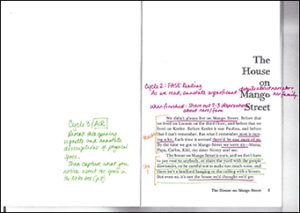 Cycle 3 (AIR)
Reread the opening
vignette and annotate
descriptions of physical
space.
Then capture what you
notice about the space in
the notes (p.1)
Cycle 2: FASE Reading
As we read, annotate significant details about narrator
her family
When finished: Share out 2-3 observations
about narr/fam
The
House
on
Mango
Street
We didn't always live on Mango Street. Before that
we lived on Loomis on the third floor, and before that we
lived on Keeler. Before Keeler it was Paulina, and before
that I can't remember. But what I remember most is mov-
ing a lot. Each time it seemed there'd be one more of us.
By the time we got to Mango Street we were six—Mama,
Papa, Carlos, Kiki, my sister Nenny and me.
The house on Mango Street is ours, and we don't have
to pay rent to anybody, or share the yard with the people
downstairs, or be careful not to make too much noise, and
there isn't a landlord banging on the ceiling with a broom.
But even so, it's not the house we'd thought we'd get.
The House on Mango Street 3